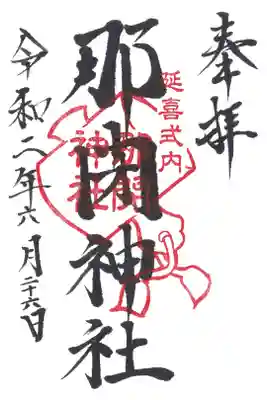 奉拝
延喜式内
那閉神社
那閉神社
令和二年六月二十六日